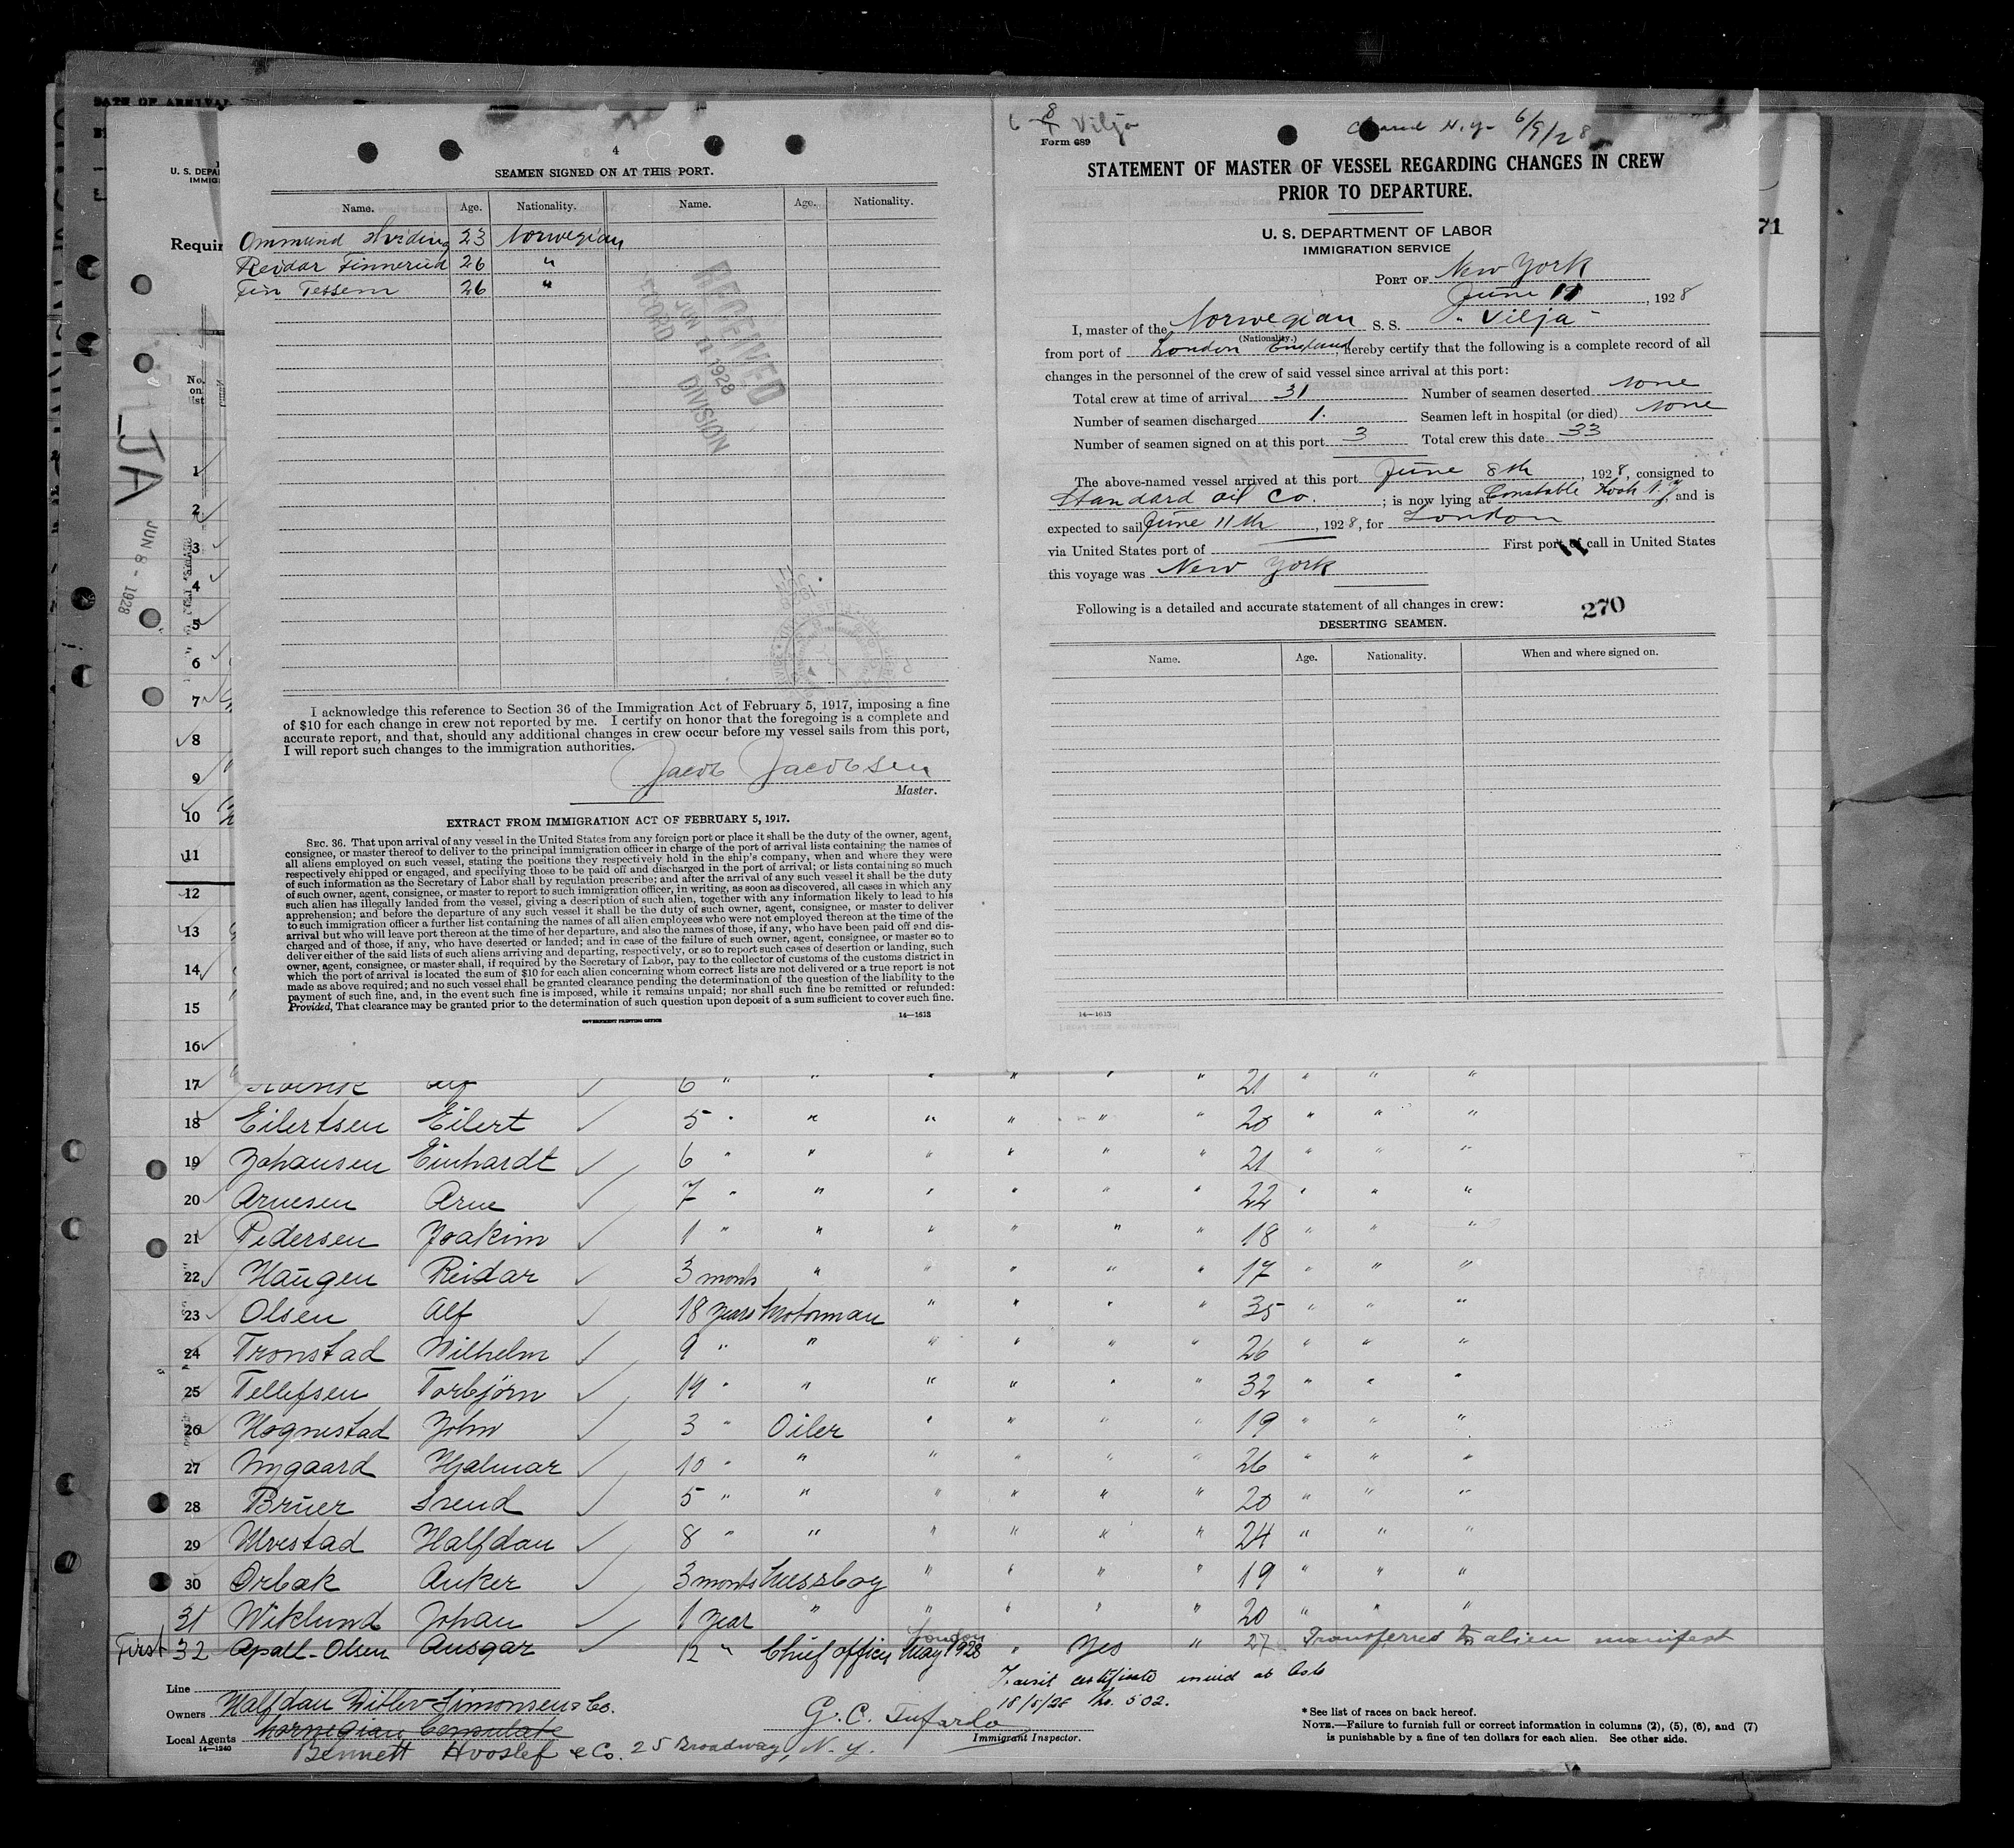 DATE OF ARRIVAL
4
SEAMEN SIGNED ON AT THIS PORT.
Name. Age. Nationality. Name. Age. Nationality.
Ommund 23 Norwegian
Reidar Finnerud 26 "
Fin Tessem 26 "
RECEIVED
JUN 11 1928
RECORD DIVISION
I acknowledge this reference to Section 36 of the Immigration Act of February 5, 1917, imposing a fine
of $10 for each change in crew not reported by me. I certify on honor that the foregoing is a complete and
accurate report, and that, should any additional changes in crew occur before my vessel sails from this port,
I will report such changes to the immigration authorities.
Jacob Jacobsen
Master.
EXTRACT FROM IMMIGRATION ACT OF FEBRUARY 5, 1917.
SEC. 36. That upon arrival of any vessel in the United States from any foreign port or place it shall be the duty of the owner, agent,
consignee, or master thereof to deliver to the principal immigration officer in charge of the port of arrival lists containing the names of
all aliens employed on such vessel, stating the positions they respectively hold in the ship's company, when and where they were
respectively shipped or engaged, and specifying those to be paid off and discharged in the port of arrival; or lists containing so much
of such information as the Secretary of Labor shall by regulation prescribe; and after the arrival of any such vessel it shall be the duty
of such owner, agent, consignee, or master to report to such immigration officer, in writing, as soon as discovered, all cases in which any
such alien has illegally landed from the vessel, giving a description of such alien, together with any information likely to lead to his
apprehension; and before the departure of any such vessel it shall be the duty of such owner, agent, consignee, or master to deliver
to such immigration officer a further list containing the names of all alien employees who were not employed thereon at the time of the
arrival but who will leave port thereon at the time of her departure, and also the names of those, if any, who have been paid off and dis-
charged and of those, if any, who have deserted or landed; and in case of the failure of such owner, agent, consignee, or master so to
deliver either of the said lists of such aliens arriving and departing, respectively, or so to report such cases of desertion or landing, such
owner, agent, consignee, or master shall, if required by the Secretary of Labor, pay to the collector of customs of the customs district in
which the port of arrival is located the sum of $10 for each alien concerning whom correct lists are not delivered or a true report is not
made as above required; and no such vessel shall be granted clearance pending the determination of the question of the liability to the
payment of such fine, and, in the event such fine is imposed, while it remains unpaid; nor shall such fine be remitted or refunded:
Provided, That clearance may be granted prior to the determination of such question upon deposit of a sum sufficient to cover such fine.
GOVERNMENT PRINTING OFFICE 14—1613
6 8 Vilja
N.Y. 6/9/28
Form 689
STATEMENT OF MASTER OF VESSEL REGARDING CHANGES IN CREW
PRIOR TO DEPARTURE.
U. S. DEPARTMENT OF LABOR
IMMIGRATION SERVICE
PORT OF New York
June 11, 1928
I, master of the Norwegian S. S. "Vilja"
(Nationality.)
from port of London England, hereby certify that the following is a complete record of all
changes in the personnel of the crew of said vessel since arrival at this port:
Total crew at time of arrival 31 Number of seamen deserted None
Number of seamen discharged 1. Seamen left in hospital (or died) None
Number of seamen signed on at this port 3 Total crew this date 33
The above-named vessel arrived at this port June 8th, 1928, consigned to
Standard Oil Co.; is now lying at Constable Hook N.J., and is
expected to sail June 11th, 1928, for London
via United States port of First port of call in United States
this voyage was New York
Following is a detailed and accurate statement of all changes in crew:
270
DESERTING SEAMEN.
Name. Age. Nationality. When and where signed on.
14—1613
71
U. S. DEPA
IMMIG
Requir
No. on list
JA
JUN 8 - 1928
1
2
3
4
5
6
7
8
9
10
11
12
13
14
15
16
17 Alf 6 " " " " " " 21 " " "
18 Eilertsen Eilert 5 " " " " " " 20 " " "
19 Johansen Einhardt 6 " " " " " " 21 " " "
20 Arnesen Arne 7 " " " " " " 22 " " "
21 Pedersen Joakim 1 " " " " " " 18 " " "
22 Haugen Reidar 3 months " " " " " 17 " " "
23 Olsen Alf 18 years Motorman " " " " 35 " " "
24 Tronstad Wilhelm 9 " " " " " " 26 " " "
25 Tellefsen Torbjörn 19 " " " " " " 32 " " "
26 Hognestad John 3 " Oiler " " " " 19 " " "
27 Nygaard Hjalmar 10 " " " " " " 26 " " "
28 Brüer Svend 5 " " " " " " 20 " " "
29 Ulvestad Halfdan 8 " " " " " " 24 " " "
30 Orbæk Anker 3 months Messboy " " " " 19 " " "
31 Wiklund Johan 1 Year " " " " " 20 " " "
First 32 Apall-Olsen Ansgar 12 " Chief officer London May 1928 " Yes " 27 Transferred to alien manifest
Transit certificate issued at Oslo
18/5/28 No. 502.
Line
Owners Halfdan Ditlev-Simonsen & Co.
Norwegian Consulate
Local Agents Bennett Hvoslef & Co. 25 Broadway, N. Y.
14—1240
G. C. Tufarlo
Immigrant Inspector.
* See list of races on back hereof.
NOTE.—Failure to furnish full or correct information in columns (2), (5), (6), and (7)
is punishable by a fine of ten dollars for each alien. See other side.